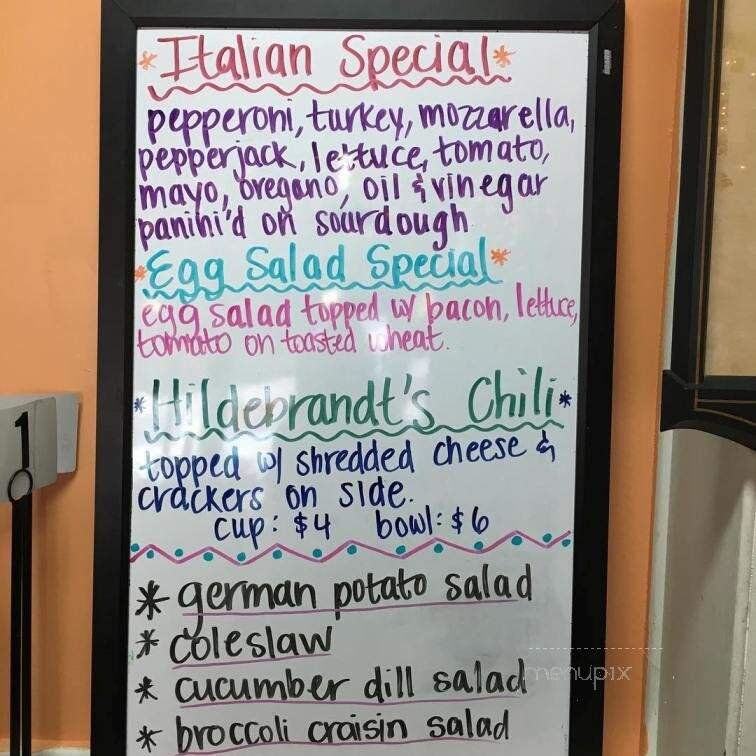 *Italian Special*
pepperoni, turkey, mozzarella,
pepperjack, lettuce, tomato,
mayo, oregano, oil & vinegar
panini'd on sourdough
*Egg Salad Special*
egg salad topped w/ bacon, lettuce,
tomato on toasted wheat.
*Hildebrandt's Chili*
topped w/ shredded cheese &
crackers on side.
cup: $4 bowl: $6
* german potato salad
* coleslaw
* cucumber dill salad
* broccoli craisin salad
1
menupix